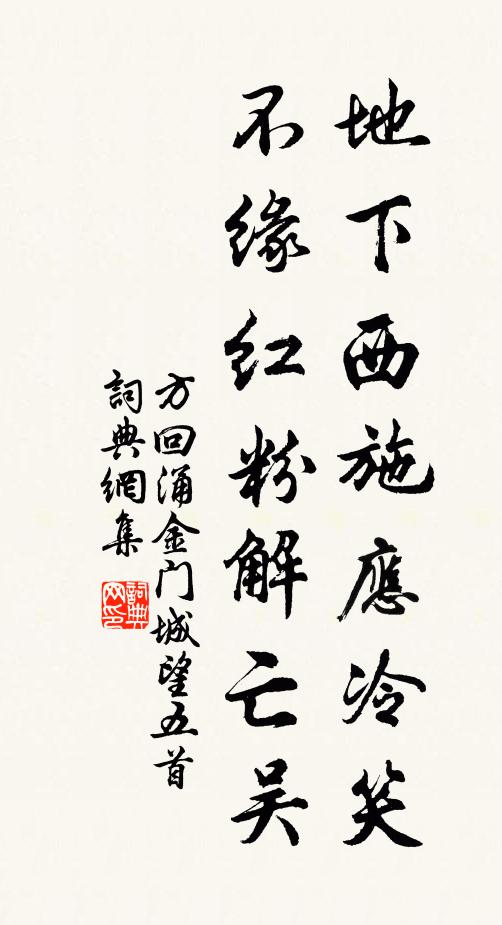 地下西施應冷笑
不緣红粉解亡吴
方回涌金门城望五首
詞典網集
詞典
网印